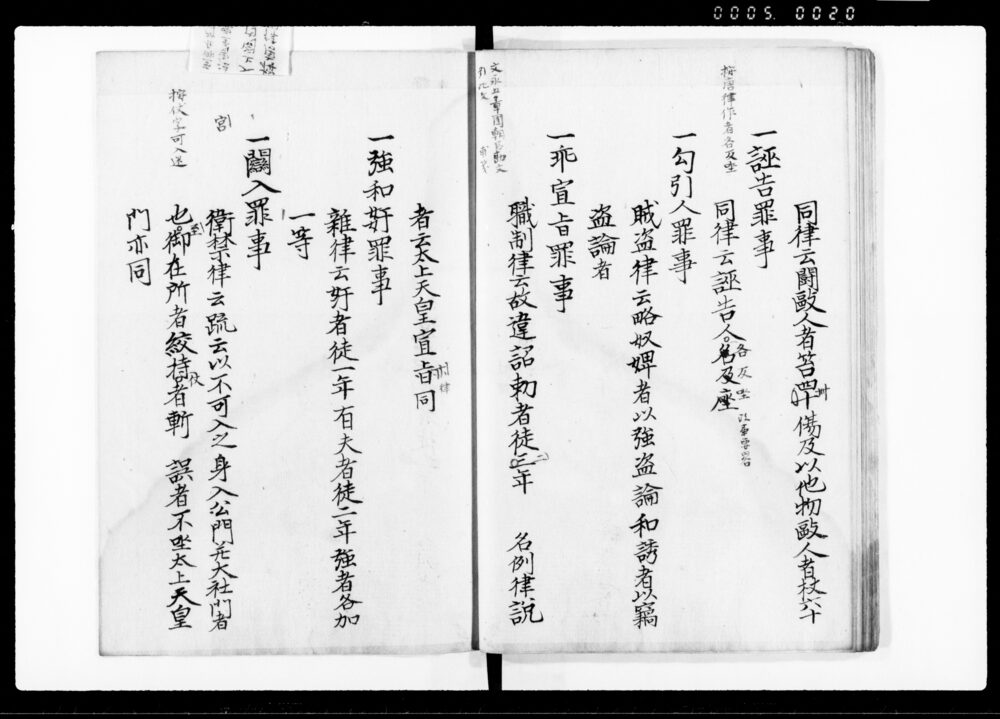 0005 0020
同律云闘毆人者笞四十傷及以他物毆人者杖六十
卅
一誣告罪事
同律云誣告人各反座
各反坐
按唐律作者各反坐
一勾引人罪事
賊盗律云略奴婢者以強盗論和誘者以竊
盗論者
一乖宣旨罪事
職制律云故違詔勅者徒三年 名例律説
者云太上天皇宣旨同
一強和奸罪事
雜律云奸者徒一年有夫者徒二年強者各加
一等
一闌入罪事
宮
衛禁律云疏云以不可入之身入公門并大社門者
也御在所者絞持者斬 誤者不坐太上天皇
至
仗
門亦同
按仗字可入送